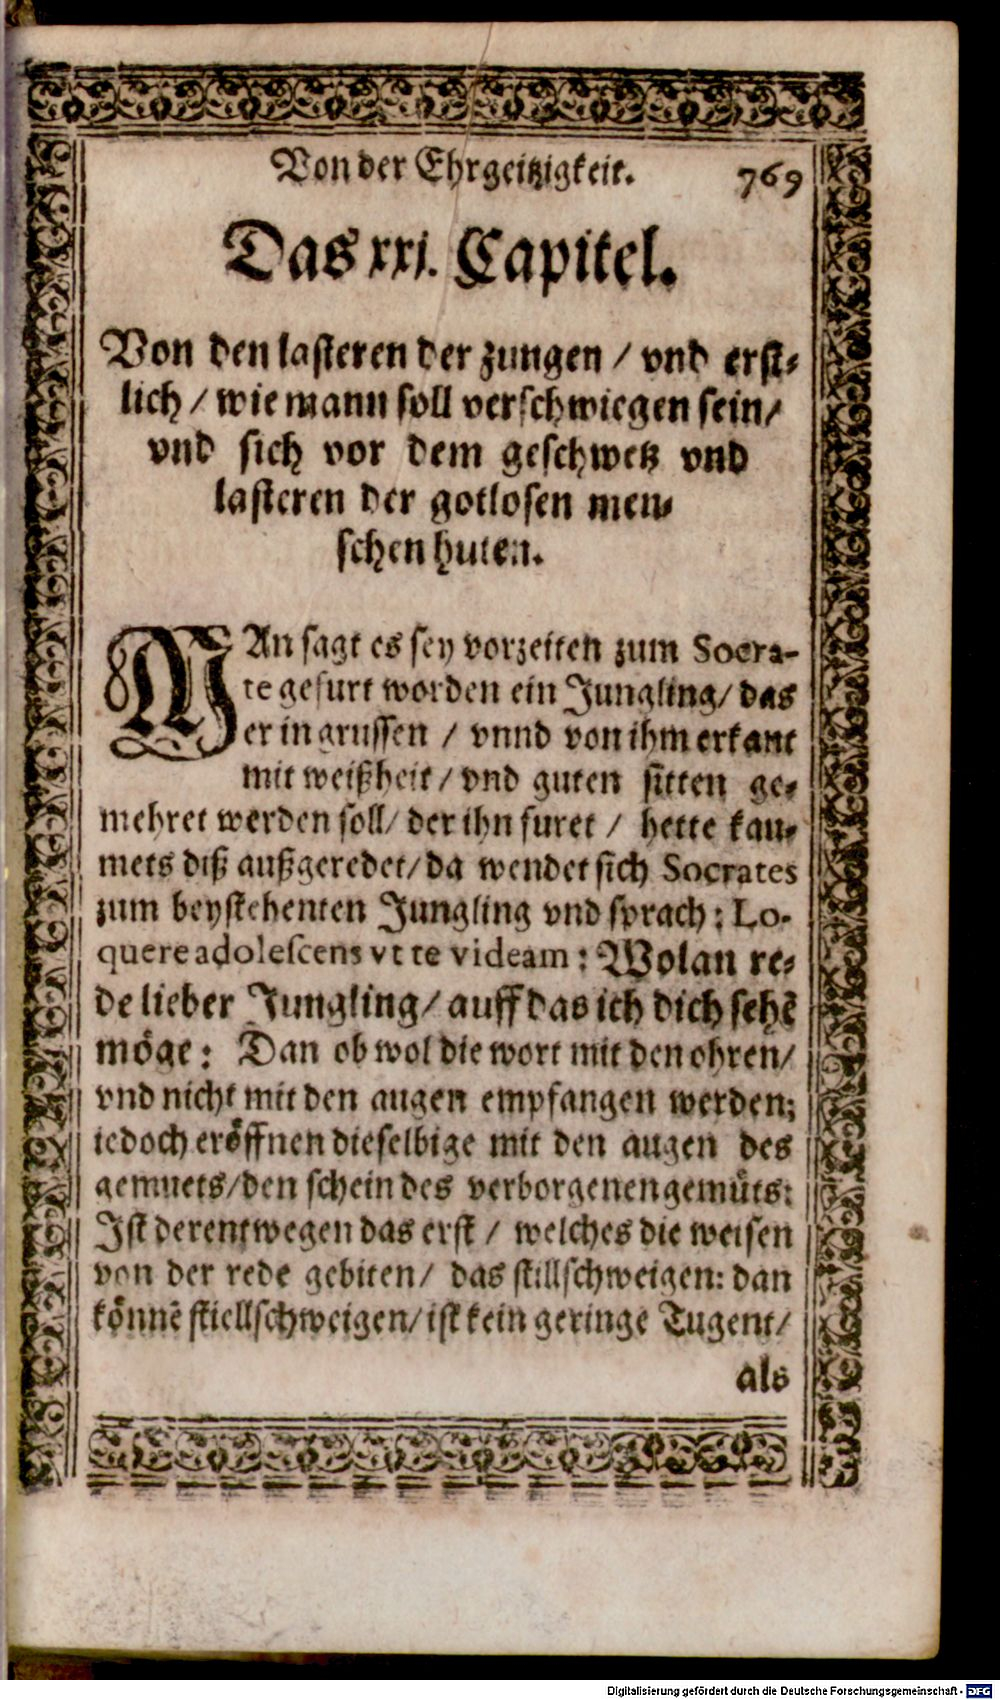 Von der Ehrgeitzigkeit. 769
Das xxi. Capitel.
Von den lasteren der zungen / vnd erst-
lich / wie mann soll verschwiegen sein /
vnd sich vor dem geschwetz vnd
lasteren der gotlosen men-
schen huten.
MAn sagt es sey vorzeiten zum Socra-
te gefurt worden ein Jungling / das
er in grussen / vnnd von ihm erkant
mit weißheit / vnd guten sitten ge-
mehret werden soll / der ihn furet / hette kau-
mets diß außgeredet / da wendet sich Socrates
zum beystehenten Jungling vnd sprach : Lo-
quere adolescens vt te videam : Wolan re-
de lieber Jungling / auff das ich dich sehē
möge : Dan ob wol die wort mit den ohren /
vnd nicht mit den augen empfangen werden;
iedoch eröffnen dieselbige mit den augen des
gemuets / den schein des verborgenen gemüts:
Ist derentwegen das erst / welches die weisen
von der rede gebiten / das stillschweigen: dan
könnē stiellschweigen / ist kein geringe Tugent /
als
Digitalisierung gefördert durch die Deutsche Forschungsgemeinschaft - DFG